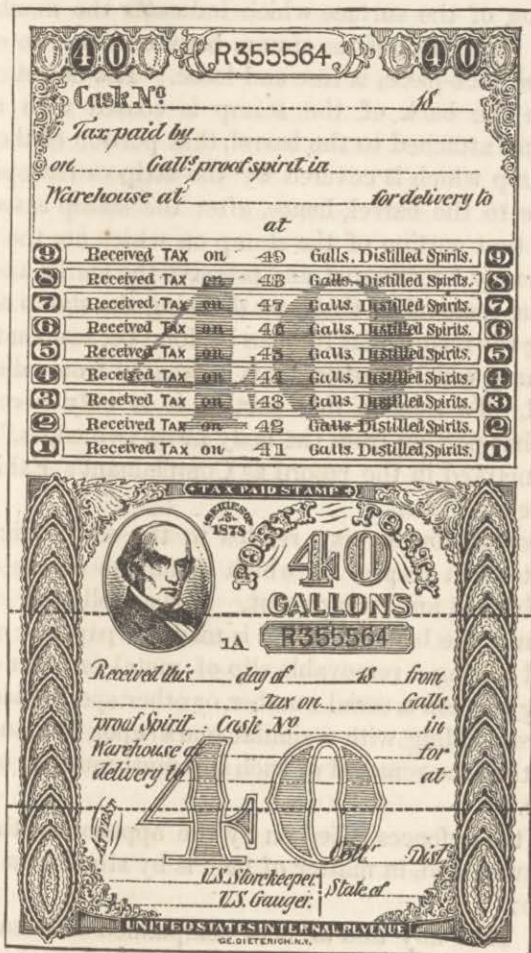 40 R355564 40
Cask Nº 18
Tax paid by
on Gallˢ proof spirit in
Warehouse at for delivery to
at
9 Received TAX on 49 Galls. Distilled Spirits. 9
8 Received TAX on 48 Galls. Distilled Spirits. 8
7 Received TAX on 47 Galls. Distilled Spirits. 7
6 Received TAX on 46 Galls. Distilled Spirits. 6
5 Received TAX on 45 Galls. Distilled Spirits. 5
4 Received TAX on 44 Galls. Distilled Spirits. 4
3 Received TAX on 43 Galls. Distilled Spirits. 3
2 Received TAX on 42 Galls. Distilled Spirits. 2
1 Received TAX on 41 Galls. Distilled Spirits. 1
40
TAX PAID STAMP
SERIES OF 1878
FORTY FORTY
40
GALLONS
1A R355564
Received this day of 18 from
tax on Galls.
proof Spirit Cask Nº in
Warehouse of for
delivery to at
40
ATTEST
Collʳ Dist.
U.S. Storekeeper
U.S. Gauger. State of
UNITED STATES INTERNAL REVENUE
GE. DIETERICH. N.Y.